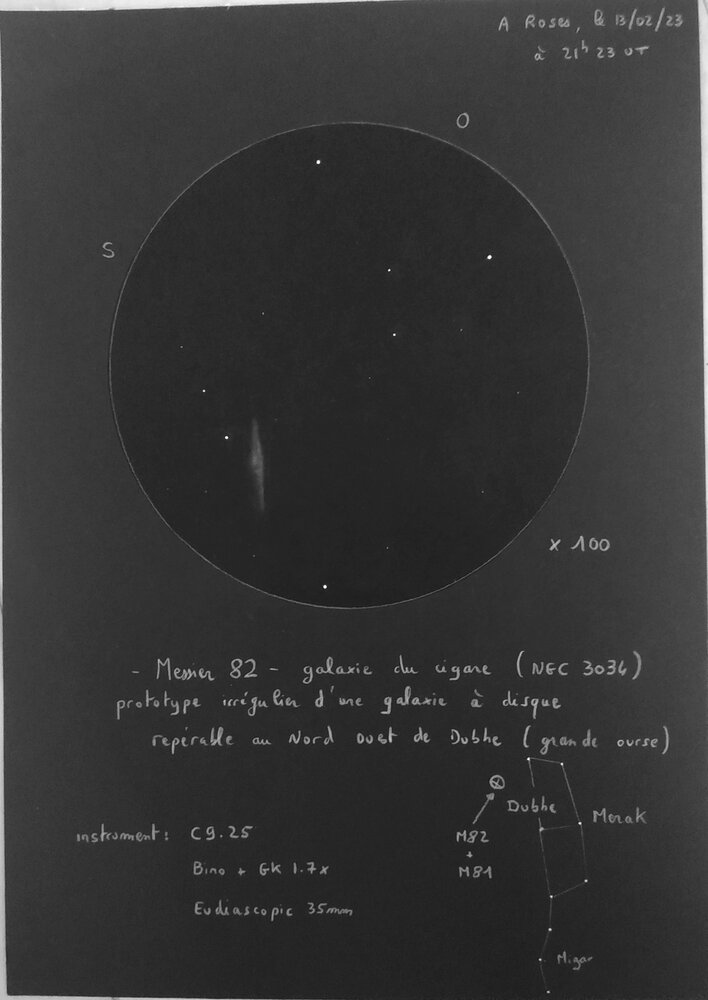 A Roses, le 13/02/23
à 21h 23 UT
O
S
x 100
- Messier 82 - galaxie du cigare (NGC 3034)
prototype irrégulier d'une galaxie à disque
repérable au Nord ouest de Dubhe (grande ourse)
Dubhe
Merak
instrument: C9.25
M82
+
Bino + GK 1.7x
M81
Eudiascopic 35mm
Mizar